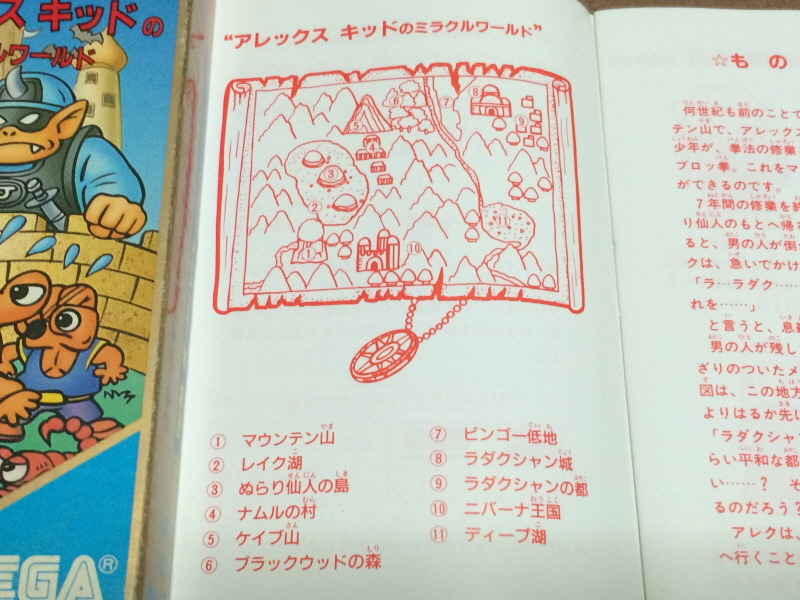 ス キッドの
ルワールド
SEGA®
“アレックス キッドのミラクルワールド”
⑥
⑦
⑧
⑤
④
⑨
③
②
⑪
①
⑩
① マウンテン山
② レイク湖
③ ぬらり仙人の島
④ ナムルの村
⑤ ケイブ山
⑥ ブラックウッドの森
⑦ ビンゴー低地
⑧ ラダクシャン城
⑨ ラダクシャンの都
⑩ ニバーナ王国
⑪ ディープ湖
☆もの
何世紀も前のことで
テン山で、アレック
少年が、拳法の修業
ブロッ拳。これをマ
ができるのです。
7年間の修業を
り仙人のもとへ帰
ると、男の人が倒
クは、急いでかけ
「ラ…ラダク…
れを……」
と言うと、息
男の人が残し
ざりのついたメ
図は、この地方
よりはるか先
「ラダクシャ
らい平和な都
い……? そ
るのだろう?
アレクは、
へ行くこと